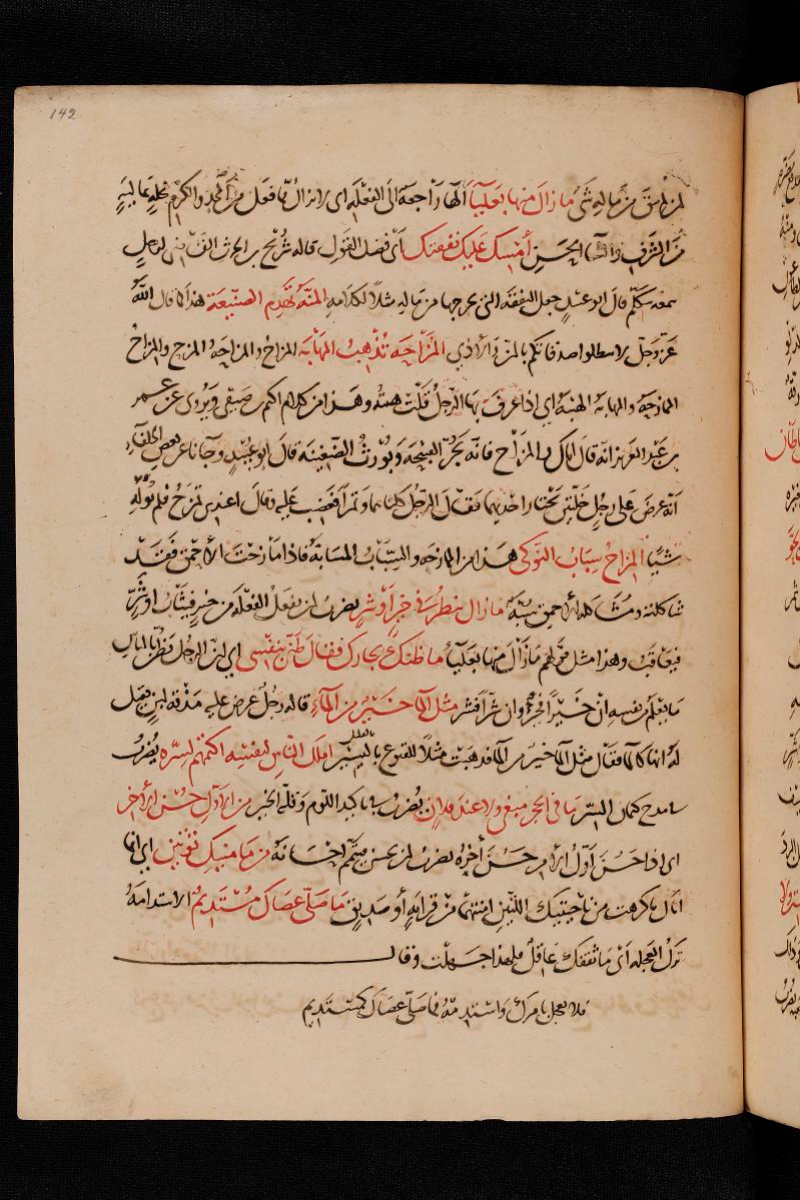 142
لمن انفق من ماله شئ ما زال منها بعلياء الهاء راجعة الى الفعلة اى لا يزال مما فعل من المجد والكرم بمحلة عالية
من الشرف والثناء الحسن امسك عليك نفقتك اى فضل القول قاله شريح بن الحرث القاضى لرجل
سمعه يتكلم قال ابو عبيد جعل النفقة التى يخرجها من ماله مثلا لكلامه المنة تهدم الصنيعة هذا كما قال الله
عز وجل لا تبطلوا صدقاتكم بالمن والاذى المزاحة تذهب المهابة المزاح والمزاحة المزح والمزاح
الممازحة والمهابة الهيبة اى اذا عرف بها الرجل قلت هيبته وهذا من كلام اكثم بن صيفى ويروى عن عمر
بن عبد العزيز انه قال اياك والمزاح فانه يجر القبيحة ويورث الضغينة قال ابو عبيد وجاءنا عن بعض الخلفاء
انه عرض على رجل حلتين يختار احديهما فقال الرجل كلتاهما وتمرا فغضب عليه وقال اعندى تمزح فلم يوله
شيئا المزاح سباب النوكى هذا من الممازحة والسباب المسابة فاذا مازحت الاحمق فقد
شاكلته ومشاكلة الاحمق سبة ما زال ينظر فى خير او شر يضرب لمن يفعل الفعلة من خير فيثاب او شر
فيعاقب وهذا مثل قولهم ما زال منها بعلياء ما ظنك بجارك فقال ظنى بنفسى اى ان الرجل يظن بالناس
ما يعلم من نفسه ان خيرا فخير وان شرا فشر مثل الماء خير من الماء قاله رجل عرض عليه مذقة لبن فقيل
له انها كالماء فقال مثل الماء خير من الماء فذهبت مثلا للقنوع باليسير املك الناس لنفسه اكتمهم لسره يضرب
فى مدح كتمان السر ما فى الحجر مبغى ولا عند فلان يضرب فى تاكيد اللوم وقلة الخير من الاول حسن الاخر
اى اذا حسن اول الامر حسن آخره يضرب لمن يحسن فيتمم احسانه من مأمنيك تؤتين اى انما
اتاك ما كرهت من ناحيتيك اللتين امنتهما من قرابة او صديق ما صلى عصاك مستديم الاستدامة
ترك العجلة اى ما ثقفك عاقل فلهذا جهلت وقال
فلا تعجل بامرك واستدمه فما صلى عصاك كمستديم